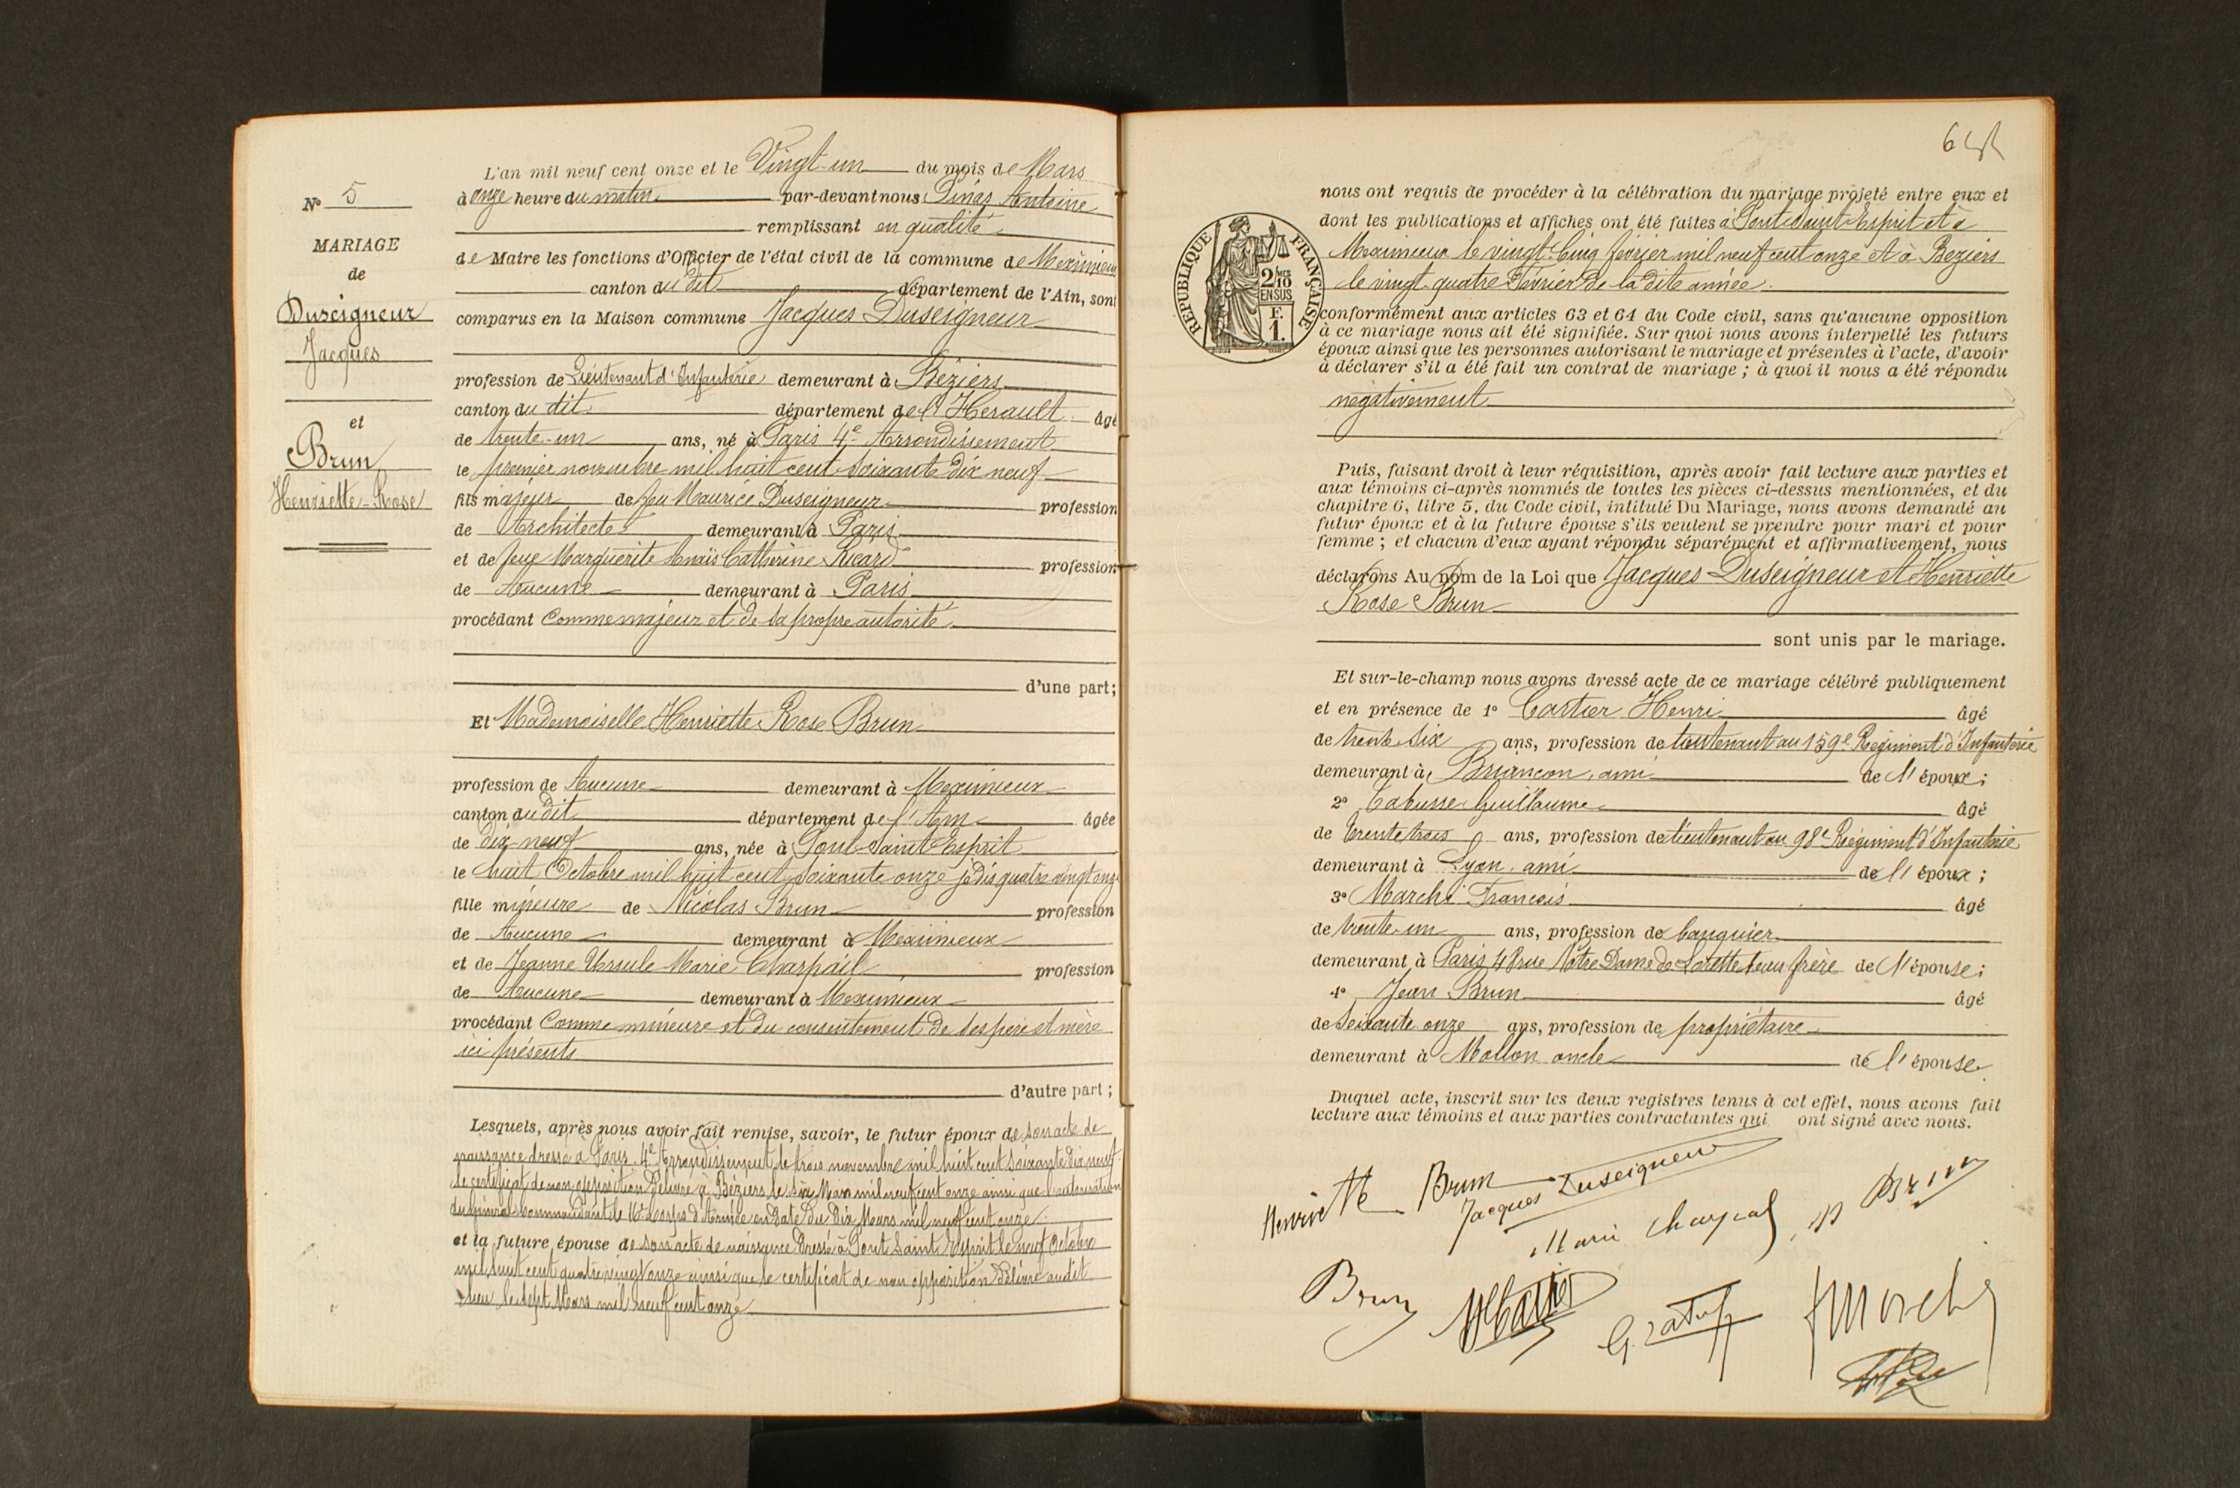 N° 5
MARIAGE
de
Duseigneur
Jacques
et
Brun
Henriette-Rose
L'an mil neuf cent onze et le Vingt-un du mois de Mars
à onze heure du matin par-devant nous Pinas Antoine
remplissant en qualité
de Maire les fonctions d'Officier de l'état civil de la commune de Meximieux
canton du dit département de l'Ain, sont
comparus en la Maison commune Jacques Duseigneur
profession de Lieutenant d'Infanterie demeurant à Béziers
canton du dit département de l'Herault âgé
de trente-un ans, né à Paris 4e Arrondissement
le premier novembre mil huit cent soixante dix neuf
fils majeur de feu Maurice Duseigneur profession
de Architecte demeurant à Paris
et de feue Marguerite Anaïs Catherine Ricard profession
de Aucune demeurant à Paris
procédant comme majeur et de sa propre autorité
d'une part;
Et Mademoiselle Henriette Rose Brun
profession de Aucune demeurant à Meximieux
canton du dit département de l'Ain âgée
de dix-neuf ans, née à Pont-Saint-Esprit
le huit Octobre mil huit cent soixante onze je dis quatre vingt onze
fille mineure de Nicolas Brun profession
de Aucune demeurant à Meximieux
et de Jeanne Ursule Marie Charpail profession
de Aucune demeurant à Meximieux
procédant comme mineure et du consentement de ses père et mère
ici présents
d'autre part;
Lesquels, après nous avoir fait remise, savoir, le futur époux de son acte de
naissance dressé à Paris 4e Arrondissement le trois novembre mil huit cent soixante dix neuf
le certificat de non opposition délivré à Béziers le six Mars mil neuf cent onze ainsi que l'autorisation
du général commandant le 16e Corps d'Armée en date du Dix Mars mil neuf cent onze
et la future épouse de son acte de naissance dressé à Pont Saint Esprit le neuf Octobre
mil huit cent quatre vingt onze ainsi que le certificat de non opposition délivré audit
lieu le sept Mars mil neuf cent onze
RÉPUBLIQUE FRANÇAISE
2/10
EN SUS
F.
1.
nous ont requis de procéder à la célébration du mariage projeté entre eux et
dont les publications et affiches ont été faites à Pont-Saint-Esprit et à
Meximieux le vingt-cinq février mil neuf cent onze et à Beziers
le vingt-quatre Février de la dite année
conformément aux articles 63 et 64 du Code civil, sans qu'aucune opposition
à ce mariage nous ait été signifiée. Sur quoi nous avons interpellé les futurs
époux ainsi que les personnes autorisant le mariage et présentes à l'acte, d'avoir
à déclarer s'il a été fait un contrat de mariage; à quoi il nous a été répondu
négativement
Puis, faisant droit à leur réquisition, après avoir fait lecture aux parties et
aux témoins ci-après nommés de toutes les pièces ci-dessus mentionnées, et du
chapitre 6, titre 5, du Code civil, intitulé Du Mariage, nous avons demandé au
futur époux et à la future épouse s'ils veulent se prendre pour mari et pour
femme; et chacun d'eux ayant répondu séparément et affirmativement, nous
déclarons Au nom de la Loi que Jacques Duseigneur et Henriette
Rose Brun
sont unis par le mariage.
Et sur-le-champ nous avons dressé acte de ce mariage célébré publiquement
et en présence de 1° Cartier Henri âgé
de trente six ans, profession de lieutenant au 159e Régiment d'Infanterie
demeurant à Briançon, ami de l'époux;
2° Guillaume âgé
de trente trois ans, profession de lieutenant au 98e Régiment d'Infanterie
demeurant à Lyon ami de l'époux;
3° Marchi François âgé
de trente-un ans, profession de banquier
demeurant à Paris 48 rue Notre Dame de Lorette beau frère de l'épouse;
4° Jean Brun âgé
de soixante onze ans, profession de propriétaire
demeurant à Mollon oncle de l'épouse
Duquel acte, inscrit sur les deux registres tenus à cet effet, nous avons fait
lecture aux témoins et aux parties contractantes qui ont signé avec nous.
Henriette Brun
Jacques Duseigneur
Marie Charpail
Brun
Brun
HCartier
FMarchi